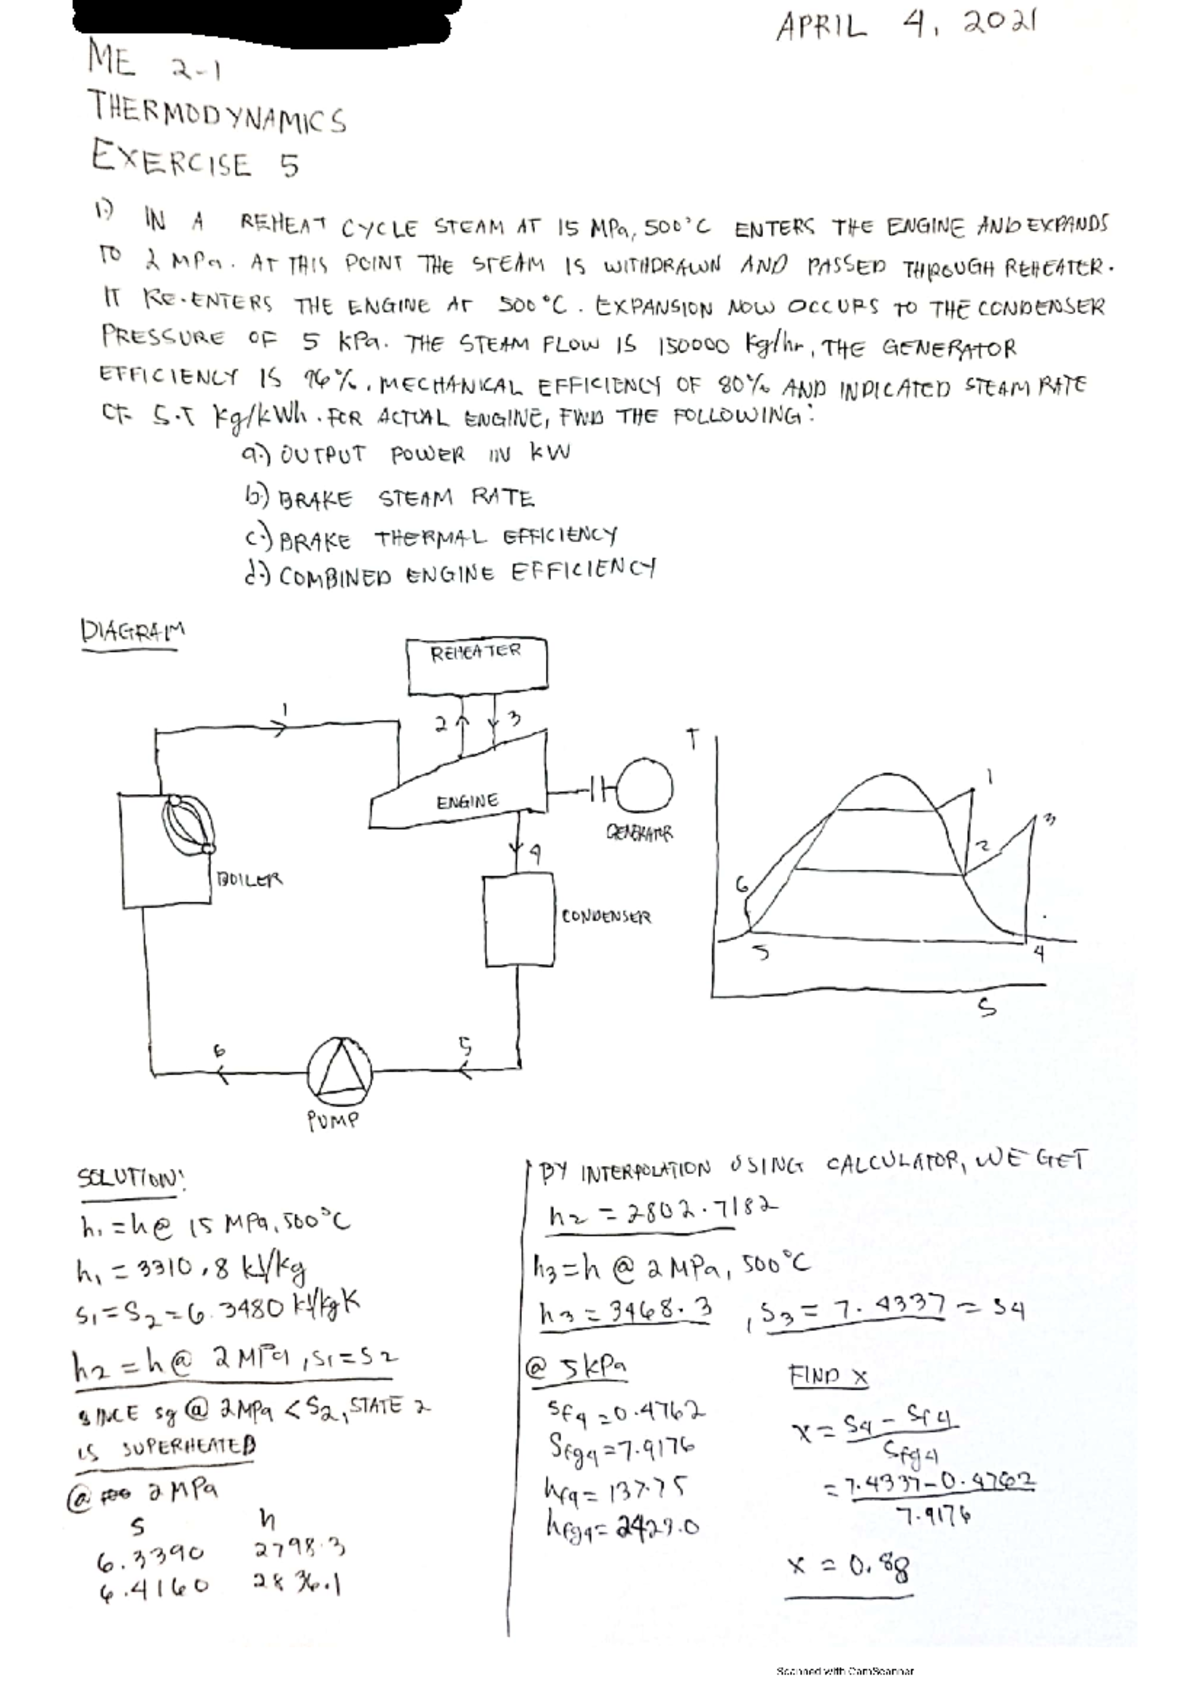 APRIL 4, 2021
ME 2-1
THERMODYNAMICS
EXERCISE 5
1.) IN A REHEAT CYCLE STEAM AT 15 MPa, 500°C ENTERS THE ENGINE AND EXPANDS
TO 2 MPa. AT THIS POINT THE STEAM IS WITHDRAWN AND PASSED THROUGH REHEATER.
IT RE-ENTERS THE ENGINE AT 500°C. EXPANSION NOW OCCURS TO THE CONDENSER
PRESSURE OF 5 kPa. THE STEAM FLOW IS 150000 kg/hr, THE GENERATOR
EFFICIENCY IS 96%, MECHANICAL EFFICIENCY OF 80% AND INDICATED STEAM RATE
OF kg/kWh. FOR ACTUAL ENGINE, FIND THE FOLLOWING:
a.) OUTPUT POWER IN kW
b.) BRAKE STEAM RATE
c.) BRAKE THERMAL EFFICIENCY
d.) COMBINED ENGINE EFFICIENCY
DIAGRAM
REHEATER
1
2
3
ENGINE
GENERATOR
4
BOILER
CONDENSER
6
5
PUMP
T
1
3
2
6
5
4
S
SOLUTION:
h1 = h @ 15 MPa, 500°C
h1 = 3310.8 kJ/kg
S1 = S2 = 6.3480 kJ/kgK
h2 = h @ 2 MPa, S1 = S2
SINCE sg @ 2MPa < S2, STATE 2
IS SUPERHEATED
@ 2 MPa
S h
6.3390 2798.3
6.4160 2836.1
BY INTERPOLATION USING CALCULATOR, WE GET
h2 = 2802.7182
h3 = h @ 2 MPa, 500°C
h3 = 3468.3 , S3 = 7.4337 = S4
@ 5 kPa
Sf4 = 0.4762
Sfg4 = 7.9176
hf4 = 137.75
hfg4 = 2423.0
FIND X
x = S4 - Sf4
Sfg4
= 7.4337 - 0.4762
7.9176
x = 0.88
Scanned with CamScanner